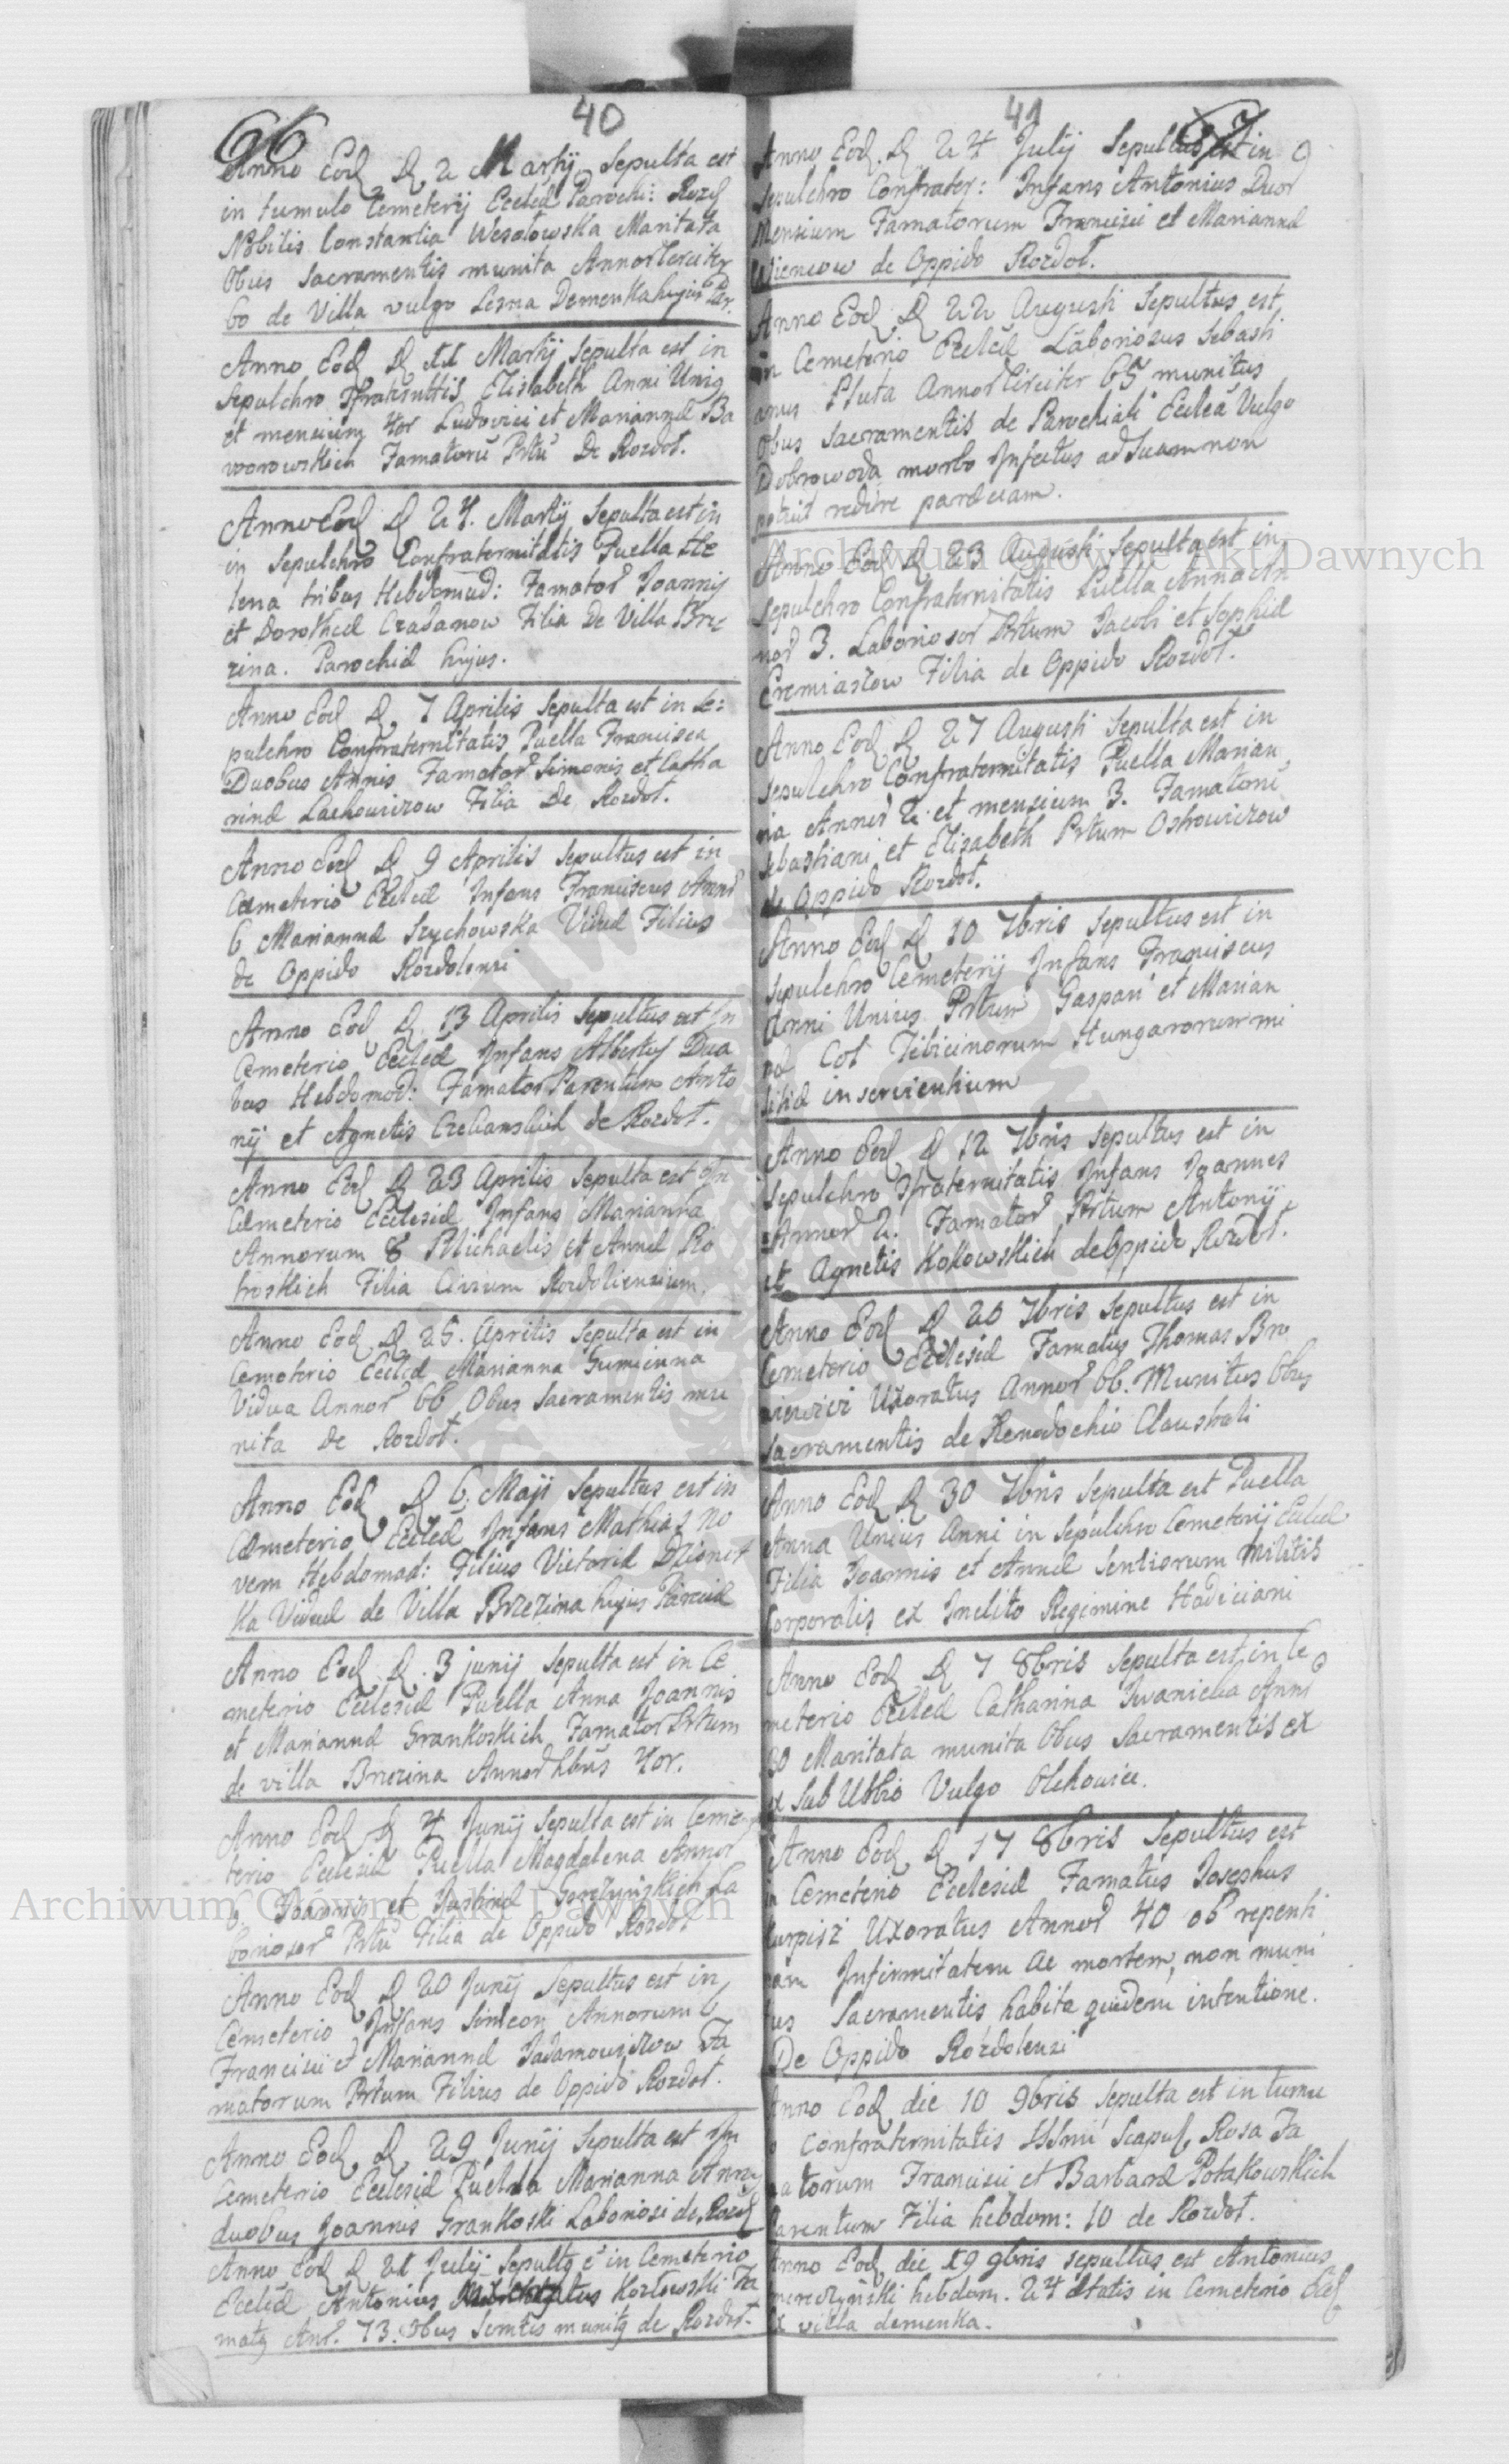 66
40
Anno Eod D 2 Martij Sepulta est
in tumulo Cemeterij Eccled Parochi: Rozd
Nobilis Constantia Wesołowska Maritata
Obus Sacramentis munita Annor Circiter
60 de Villa vulgo Lesna Demenka hujus Par.
Anno Eod D 11 Martij Sepulta est in
Sepulchro Sfraternittis Elisabeth Anni Unig
et mensium 4or Ludovici et Marianna Ba
worowskich Famatorū Prtū De Rozdoł.
Anno Eod D 24. Martij Sepulta est in
in Sepulchro Confraternitatis Puella He
lena tribus Hebdomad: Famator Joannis
et Dorothea Czadanow Filia De Villa Brze
zina. Parochia hujus.
Anno Eod D. 7 Aprilis Sepulta est in Se:
pulchro Confraternitatis Puella Francisca
Duobus Annis Famator Simonis et Catha
rina Lachowiczow Filia de Rozdoł.
Anno Eod D 9 Aprilis Sepultus est in
Cæmeterio Eccleæ Infans Franciscus Annor
6 Marianna Szychowska Vidua Filius
de Oppido Rozdolensi
Anno Eod D. 13 Aprilis Sepultus est In
Cemeterio Eccleæ Infans Albertus Dua
bus Hebdomad: Famator Parentum Anto
nij et Agnetis Czekanskich de Rozdoł.
Anno Eod D 23 Aprilis Sepulta est In
Cæmeterio Ecclesiæ Infans Marianna
Annorum 8 Michaelis et Anna Ro
hoskich Filia Civium Rozdoliensium.
Anno Eod D 25. Aprilis Sepulta est in
Cemeterio Eccleæ Marianna Gumienna
Vidua Annor 66 Obus Sacramentis mu
nita de Rozdoł.
Anno Eod D 6 Maji Sepultus est in
Cæmeterio Eccleæ Infans Mathias No
vem Hebdomad: Filius Victoria
ka Vidua de Villa Brzezina hujus Paræciæ
Anno Eod D. 3 junij Sepulta est in Ce
meterio Ecclesiæ Puella Anna Joannis
et Marianna Grankoskich Famator Prtum
de villa Brzezina Annor 4or.
Anno Eod D 4 Junij Sepulta est in Ceme
terio Ecclesiæ Puella Magdalena Annor
Joannis et Justina Gorzynskich La
boriosor Prtū Filia de Oppido Rozdoł
Anno Eod D 20 Junij Sepultus est in
Cemeterio Infans Simeon Annorum 6
Francisci et Marianna Jadamowiczow Fa
matorum Prtum Filius de Oppido Rozdoł.
Anno Eod D. 29 Junij Sepulta est In
Cemeterio Ecclesiæ Puella Marianna Annis
duobus Joannis Grankoski Laboriosi de Rozd
Anno Eod D 21 Julij Sepultg e in Cemeterio
Eccleæ Antonius Kozłowski Fa
matg Anr. 73. Obus Semtis munitg de Rozdoł.
41
67
Anno Eod. D 24 Julij Sepultus est in
Sepulchro Confrater: Infans Antonius Duor
Mensium Famatorum Francisci et Marianna
de Oppido Rozdoł.
Anno Eod D 22 Augusti Sepultus est
in Cemeterio Eccleæ Laboriosus Sebasti
anus Pluta Annor Circiter 65 munitus
Obus Sacramentis de Parochiali Ecclea Vulgo
Dobrowoda morbo Infectus ad Suam non
potuit redire paræciam.
Anno Eod D 23 Augusti Sepulta est in
Sepulchro Confraternitatis Puella Anna An
nor 3. Laboriosor Prtum Jacobi et Sophia
Filia de Oppido Rozdoł.
Anno Eod D 27 Augusti Sepulta est in
Sepulchro Confraternitatis Puella Marian
na Annor 2 et mensium 3. Famatorū
Sebastiani et Elisabeth Prtum Ostrowiczow
de Oppido Rozdoł.
Anno Eod D 10 7bris Sepultus est in
Sepulchro Cemeterij Infans Franciscus
Anni Unius Prtum Gaspari et Marian
na Cot Tibicinorum Hungarorum mi
litiæ inservientium
Anno Eod D 12 7bris Sepultus est in
Sepulchro Sfraternitatis Infans Joannes
Annor 2. Famator Prtum Antonij
et Agnetis Kokowskich de Oppido Rozdoł.
Anno Eod D 20 7bris Sepultus est in
Cemeterio Ecclesiæ Famatus Thomas Bro
Uxoratus Annor 66. Munitus Obus
Sacramentis de Xenodochio Claustrali
Anno Eod D 30 7bris Sepulta est Puella
Anna Unius Anni in Sepulchro Cemeterij Eccleæ
Filia Joannis et Anna Sentiorum Militis
Corporalis ex Inclito Regimine Hadiciani
Anno Eod D 7 8bris Sepulta est in Ce
meterio Eccleæ Catharina Iwanicha Anno
30 Maritata munita Obus Sacramentis ex
ex Sub Urbio Vulgo Olchowice.
Anno Eod D 17 8bris Sepultus est
in Cemeterio Ecclesiæ Famatus Josephus
Uxoratus Annor 40 ob repenti
nam Infirmitatem ac mortem, non muni
tus Sacramentis habita quidem intentione.
De Oppido Rozdolensi
Anno Eod die 10 9bris Sepulta est in tumu
lo Confraternitatis SSmi Scapul. Rosa Fa
matorum Francisci et Barbara Potakowskich
Parentum Filia hebdom: 10 de Rozdoł.
Anno Eod die 19 9bris sepultus est Antonius
hebdom. 24 ætatis in Cemeterio Eccl
Ex villa demenka.
Archiwum Główne Akt Dawnych
Archiwum Główne Akt Dawnych